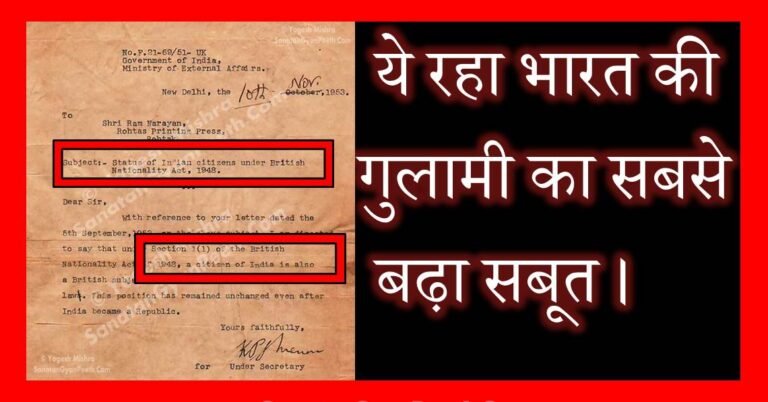 © Yogesh Mishra
SanatanGyanPeeth.Com
No.F.21-69/51- UK
Government of India,
Ministry of External Affairs.
New Delhi, the 10th Nov. October, 1953.
To
Shri Ram Narayan,
Rohtas Printing Press,
Subject:- Status of Indian citizens under British
Nationality Act, 1948.
Dear Sir,
With reference to your letter dated the
5th September,
to say that Section 1(1) of the British
Nationality Act 1948, a citizen of India is also
a British
This position has remained unchanged even after
India became a Republic.
Yours faithfully,
for Under Secretary
© Yogesh Mishra
SanatanGyanPeeth.Com
ये रहा भारत की
गुलामी का सबसे
बढ़ा सबूत।